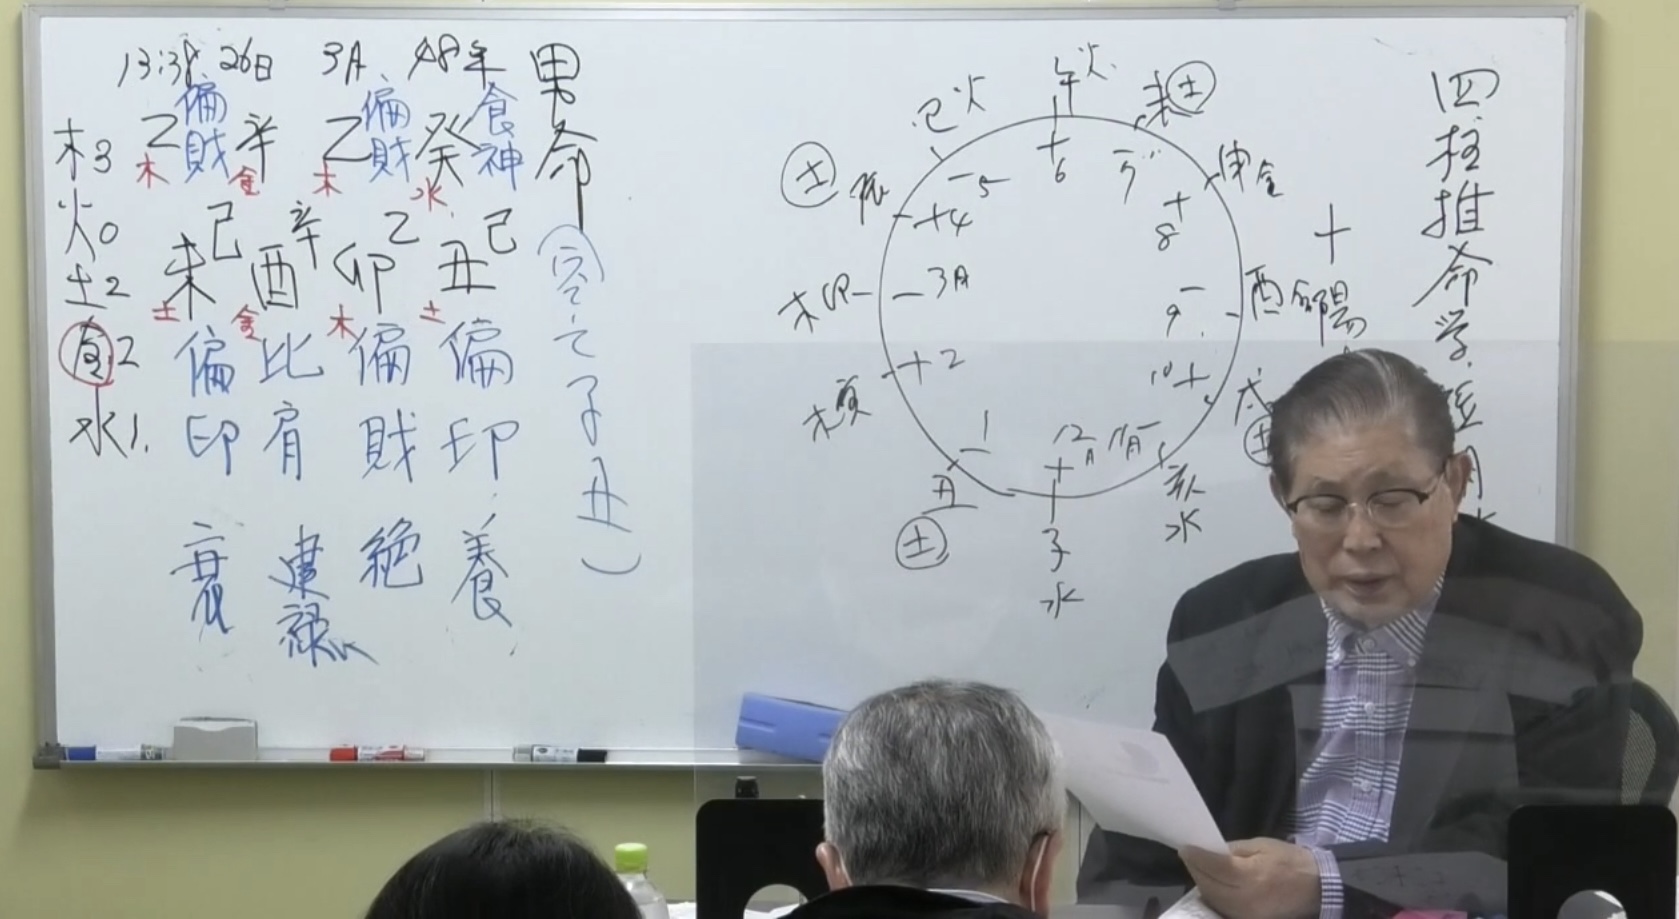 13:38 26日 3月 48年 男命
偏財 偏財 食神
乙 辛 乙 癸
木 金 木 水
己 辛 乙 己
未 酉 卯 丑
土 金 木 土
偏印 比肩 偏財 偏印
衰 建禄 絶 養
木3
火0
土2
金2
水1
空亡子丑
午火
未土
申金
酉
亥水
子水
丑土
木寅
木卯
土辰
巳火
6
7
8
9
10
11月
12月
1
2
3月
4
5
十陽
四柱推命学